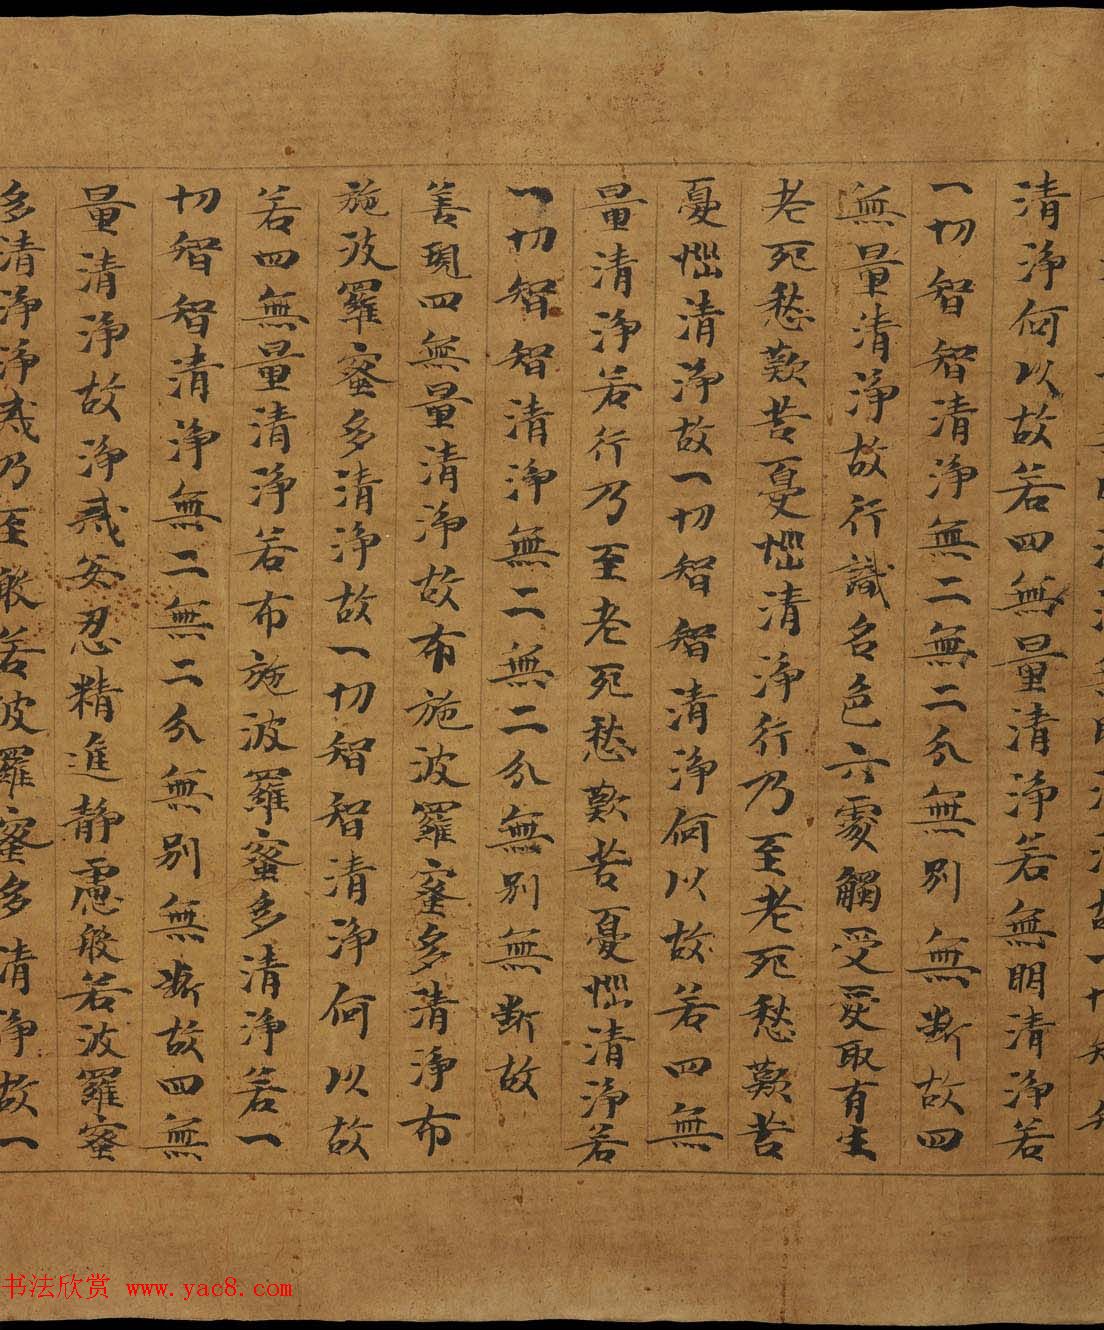 清淨何以故若四無量清淨若無明清淨若
一切智智清淨無二無二分無別無斷故四
無量清淨故行識名色六處觸受愛取有生
老死愁歎苦憂惱清淨行乃至老死愁歎苦
憂惱清淨故一切智智清淨何以故若四無
量清淨若行乃至老死愁歎苦憂惱清淨若
一切智智清淨無二無二分無別無斷故
善現四無量清淨故布施波羅蜜多清淨布
施波羅蜜多清淨故一切智智清淨何以故
若四無量清淨若布施波羅蜜多清淨若一
切智智清淨無二無二分無別無斷故四無
量清淨故淨戒安忍精進靜慮般若波羅蜜
多清淨淨戒乃至般若波羅蜜多清淨故一
书法欣赏 www.yac8.com